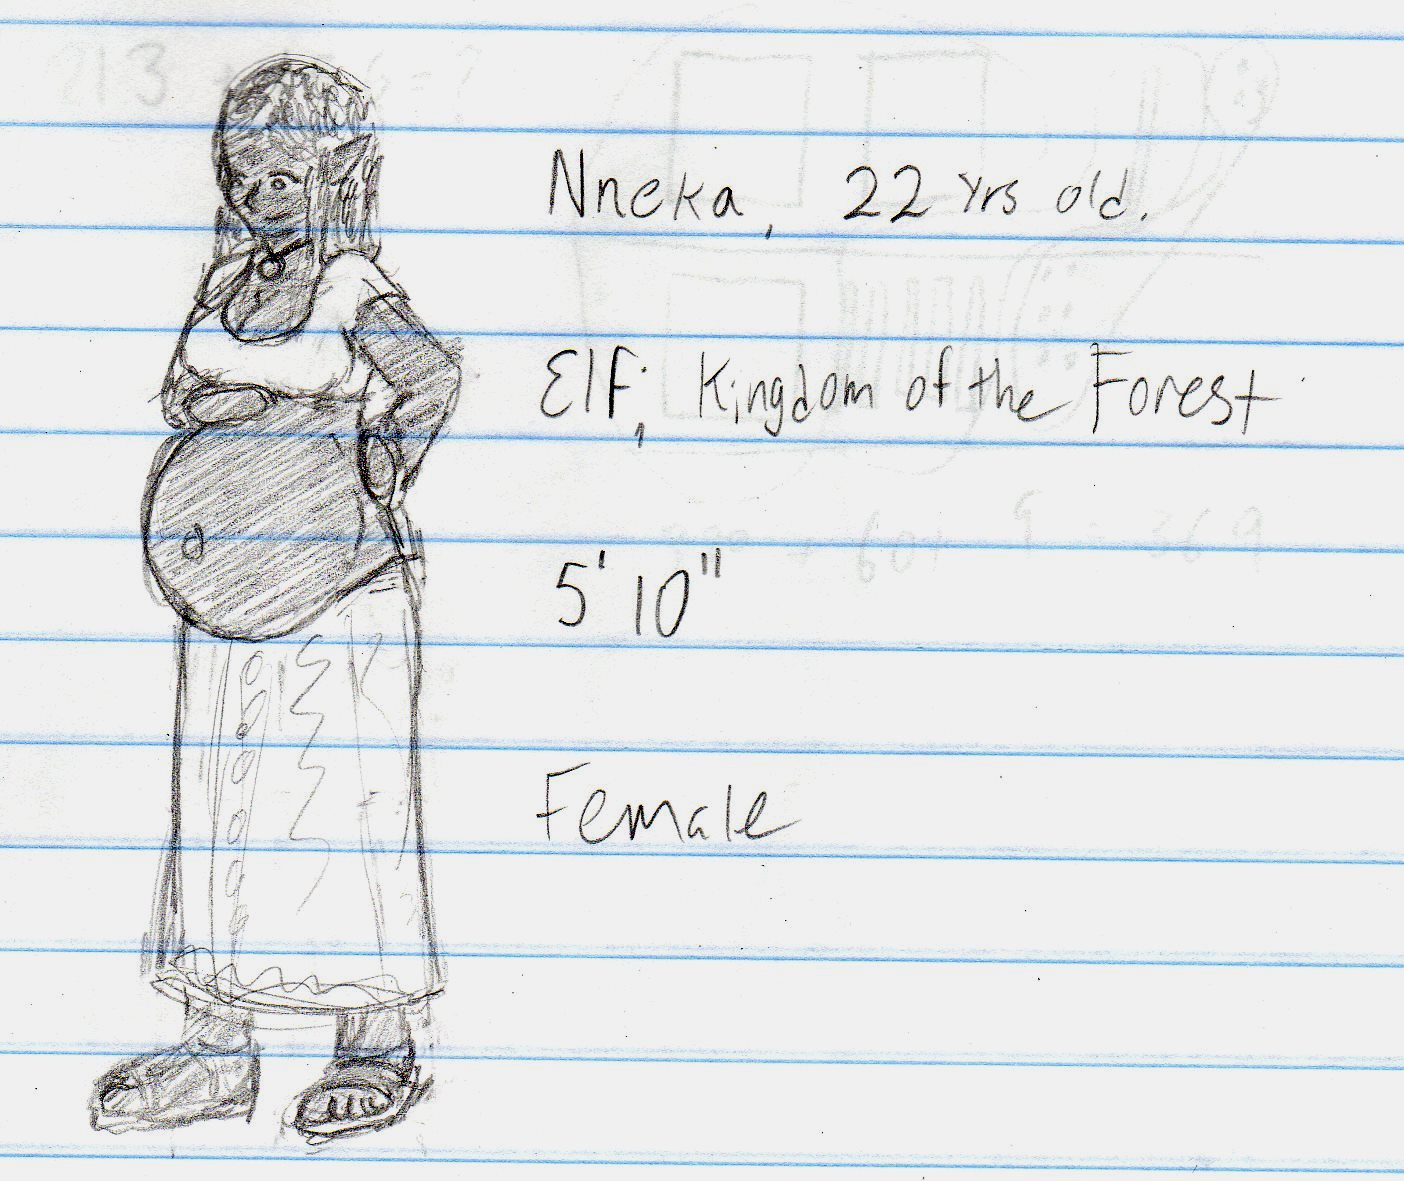 Nneka, 22 yrs old.
Elf; Kingdom of the Forest
5' 10"
Female